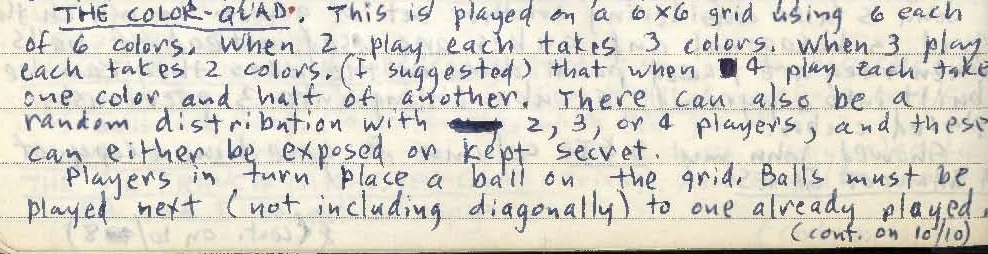 THE COLOR-QUAD. This is played on a 6x6 grid using 6 each
of 6 colors. When 2 play each takes 3 colors. When 3 play
each takes 2 colors. (I suggested) that when 4 play each take
one color and half of another. There can also be a
random distribution with 2, 3, or 4 players, and these
can either be exposed or kept secret.
Players in turn place a ball on the grid. Balls must be
played next (not including diagonally) to one already played.
(cont. on 10/10)